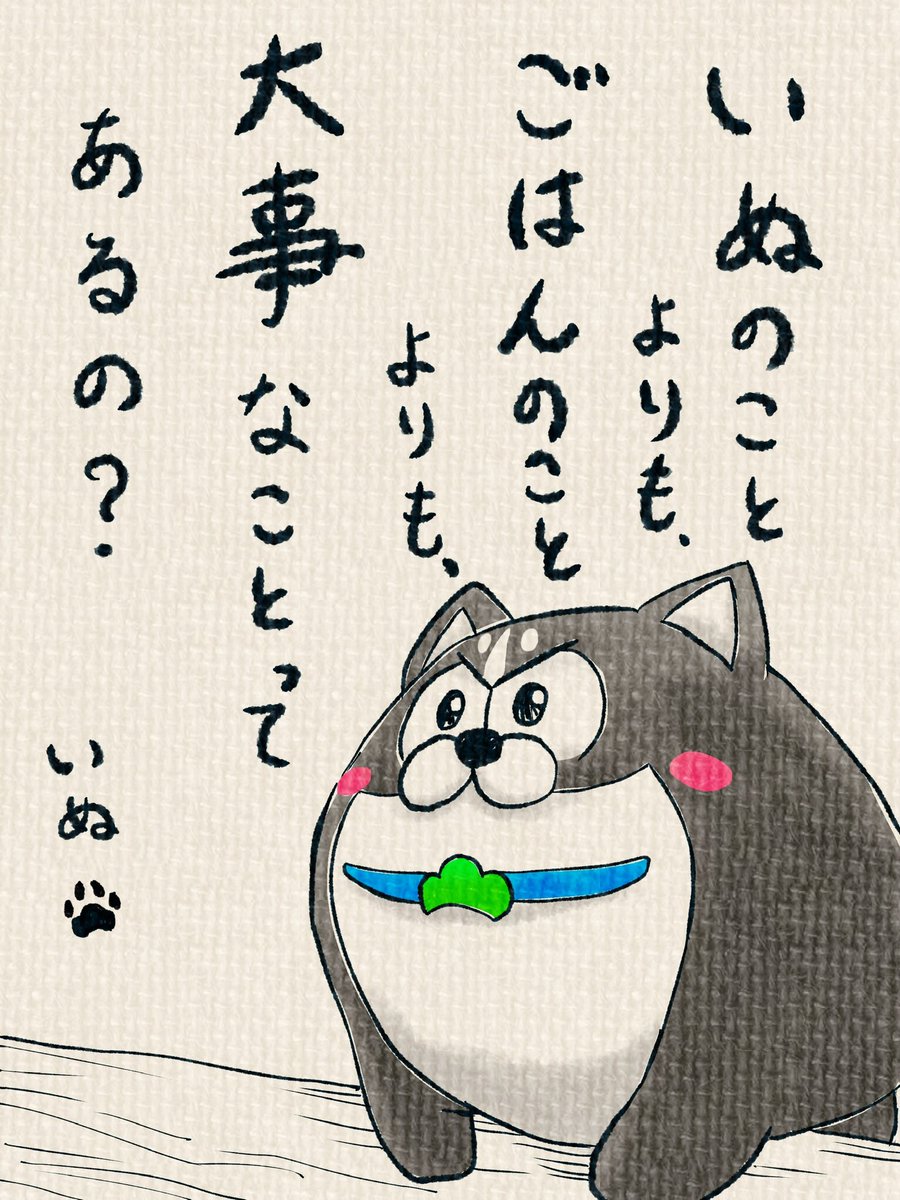 いぬのこと
よりも、
ごはんのこと
よりも、
大事なことって
あるの？
いぬ